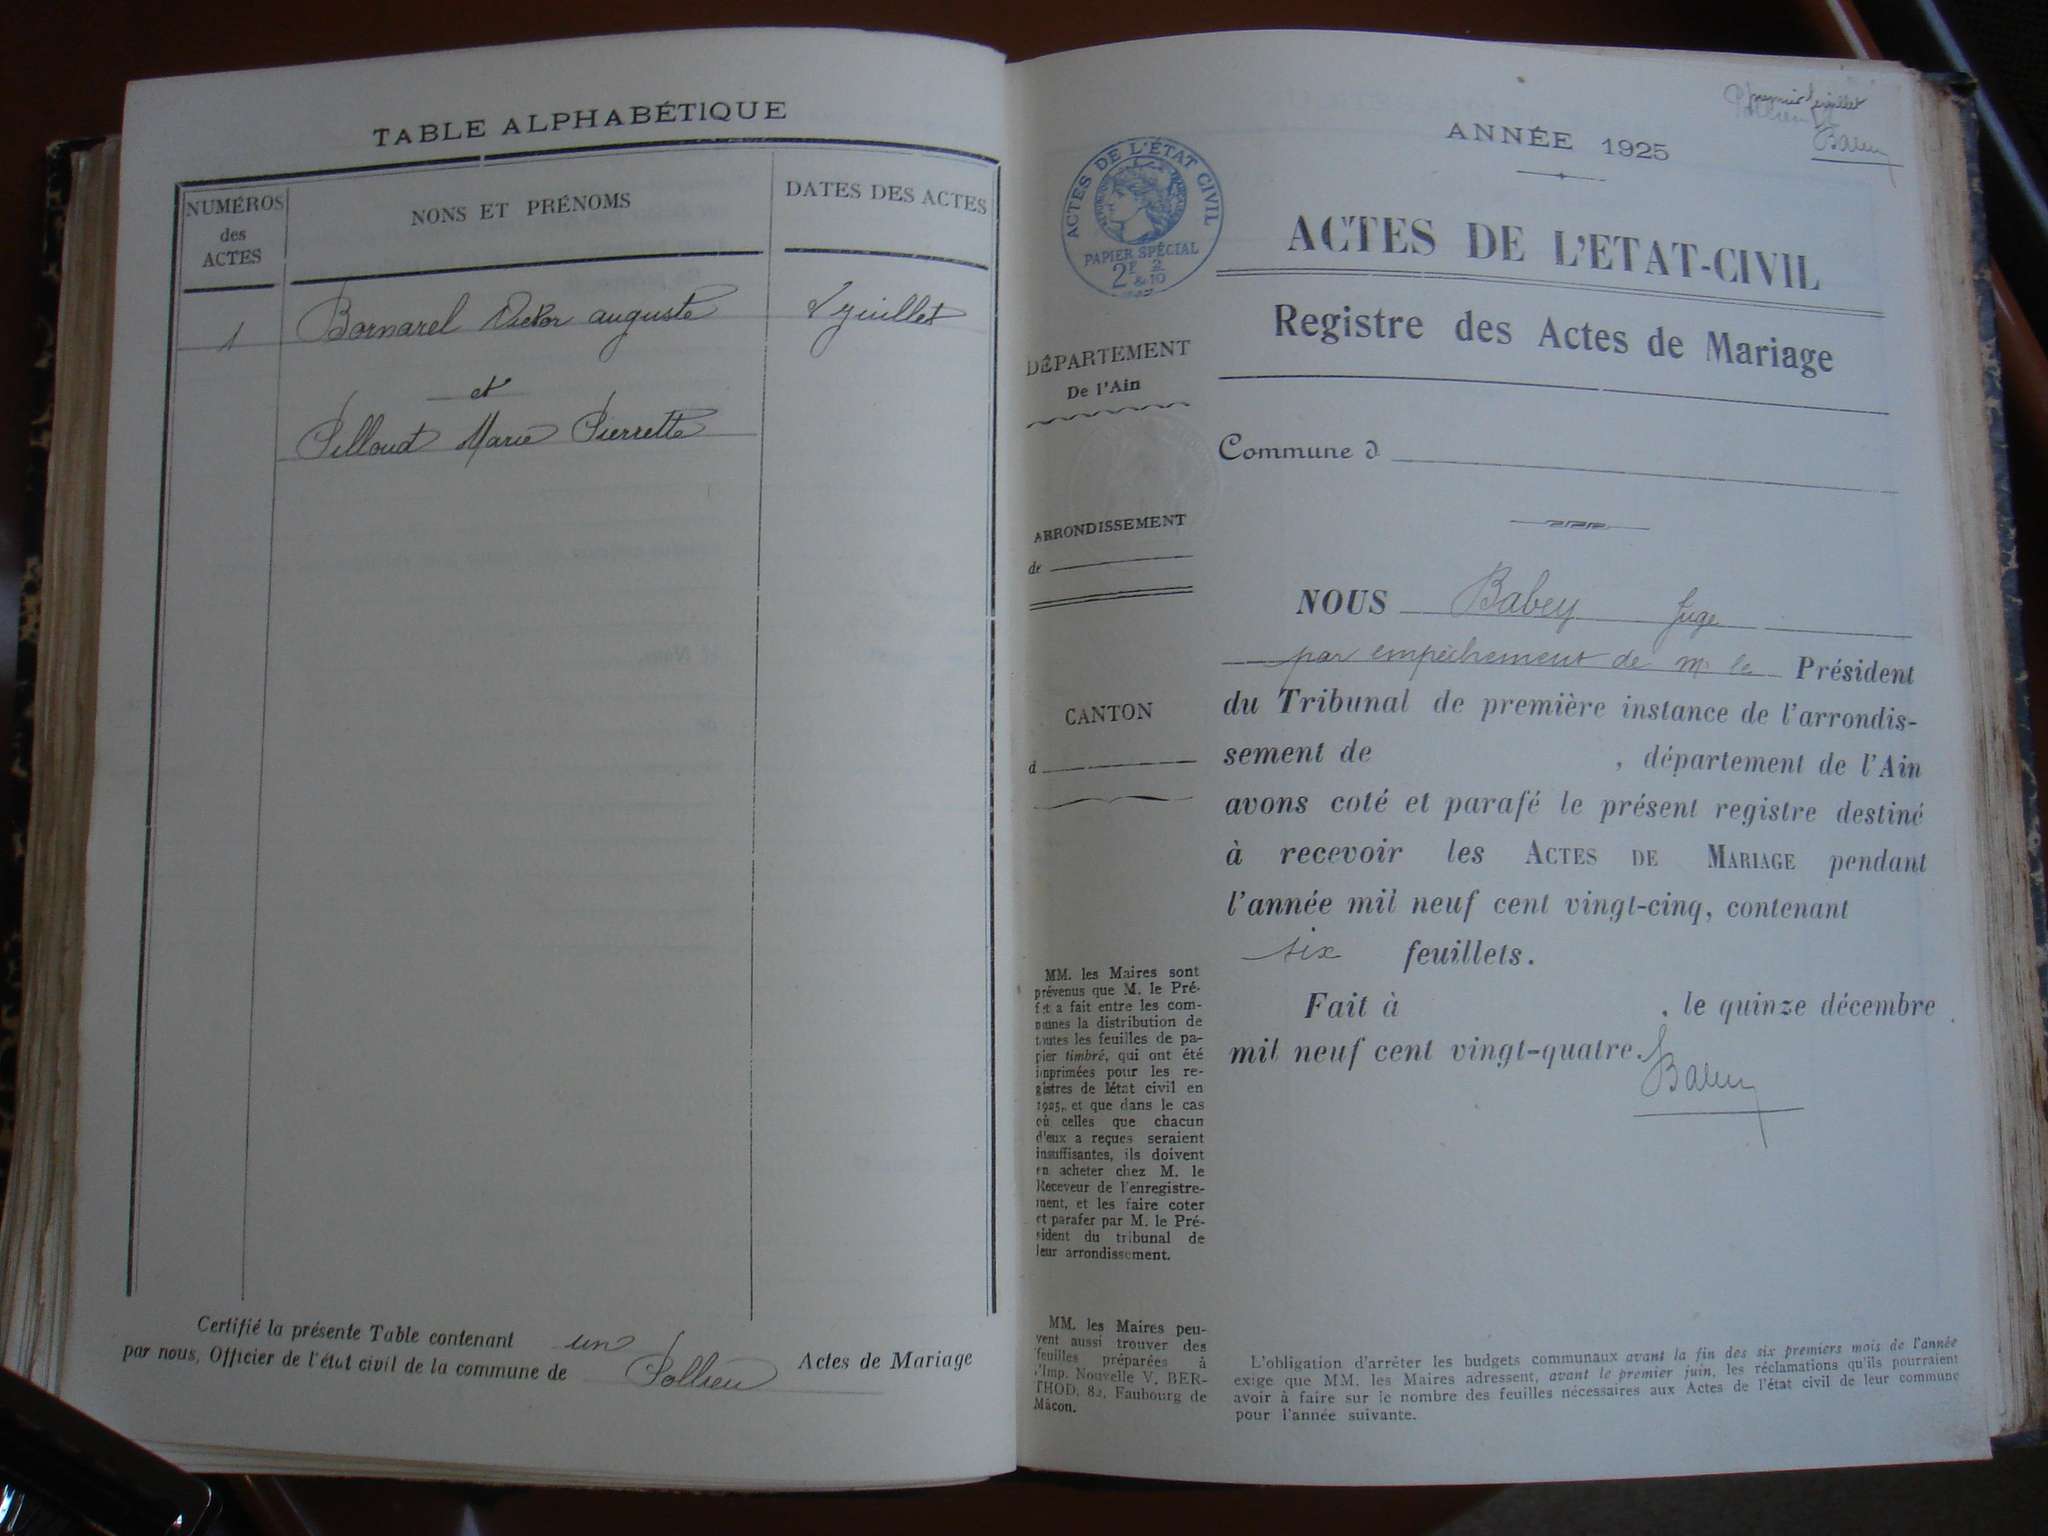 TABLE ALPHABÉTIQUE
NUMÉROS
des
ACTES
NONS ET PRÉNOMS
DATES DES ACTES
1
Bornarel Victor auguste
juillet
et
Pilloud Marie Pierrette
Certifié la présente Table contenant un
Actes de Mariage
par nous, Officier de l'état civil de la commune de Pollieu
premier feuillet
Pollieu
Babey
ANNÉE 1925
ACTES DE L'ÉTAT CIVIL
RÉPUBLIQUE FRANÇAISE
PAPIER SPÉCIAL
2F & 2/10
ACTES DE L'ETAT-CIVIL
Registre des Actes de Mariage
DÉPARTEMENT
De l'Ain
Commune d
ARRONDISSEMENT
de
CANTON
d
NOUS Babey Juge
par empêchement de M le Président
du Tribunal de première instance de l'arrondis-
sement de , département de l'Ain
avons coté et parafé le présent registre destiné
à recevoir les ACTES DE MARIAGE pendant
l'année mil neuf cent vingt-cinq, contenant
six feuillets.
Fait à , le quinze décembre
mil neuf cent vingt-quatre.
Babey
MM. les Maires sont
prévenus que M. le Pré-
fet a fait entre les com-
munes la distribution de
toutes les feuilles de pa-
pier timbré, qui ont été
imprimées pour les re-
gistres de létat civil en
1925, et que dans le cas
où celles que chacun
d'eux a reçues seraient
insuffisantes, ils doivent
en acheter chez M. le
Receveur de l'enregistre-
ment, et les faire coter
et parafer par M. le Pré-
sident du tribunal de
leur arrondissement.
MM. les Maires peu-
vent aussi trouver des
feuilles préparées à
l'Imp. Nouvelle V. BER-
THOD, 82, Faubourg de
Mâcon.
L'obligation d'arrêter les budgets communaux avant la fin des six premiers mois de l'année
exige que MM. les Maires adressent, avant le premier juin, les réclamations qu'ils pourraient
avoir à faire sur le nombre des feuilles nécessaires aux Actes de l'état civil de leur commune
pour l'année suivante.